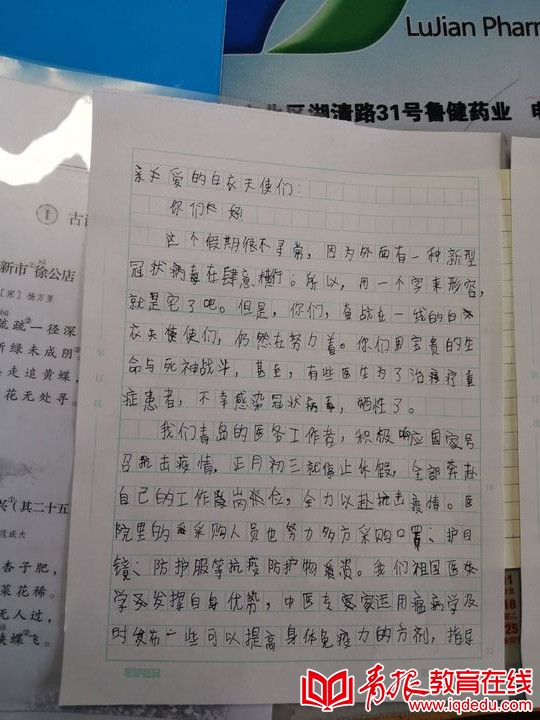 LuJian Pharm
区湖清路31号鲁健药业 电
亲爱的白衣天使们:
你们好
这个假期很不寻常,因为外面有一种新型
冠状病毒在肆意横行。所以,用一个字来形容,
就是宅了吧。但是,你们,奋战在一线的白
衣天使们,仍然在努力着。你们用宝贵的生
命与死神战斗,甚至,有些医生为了治疗重
症患者,不幸感染冠状病毒,牺牲了。
我们青岛的医务工作者,积极响应国家号
召抗击疫情,正月初三就停止休假,全部奔赴
自己的工作岗位,全力以赴抗击疫情。医
院里的采购人员也努力多方采购口罩、护目
镜、防护服等抗疫防护物资。我们祖国医
学发挥自身优势,中医专家运用瘟病学及
时发布一些可以提高身体免疫力的方剂,指导
1 古
新市 徐公店
[宋] 杨万里
疏疏一径深
新绿未成阴
走追黄蝶
花无处寻。
兴(其二十五
范成大
杏子肥,
菜花稀。
无人过,
蛱蝶飞。
装订线
青报教育在线
www.iqdedu.com